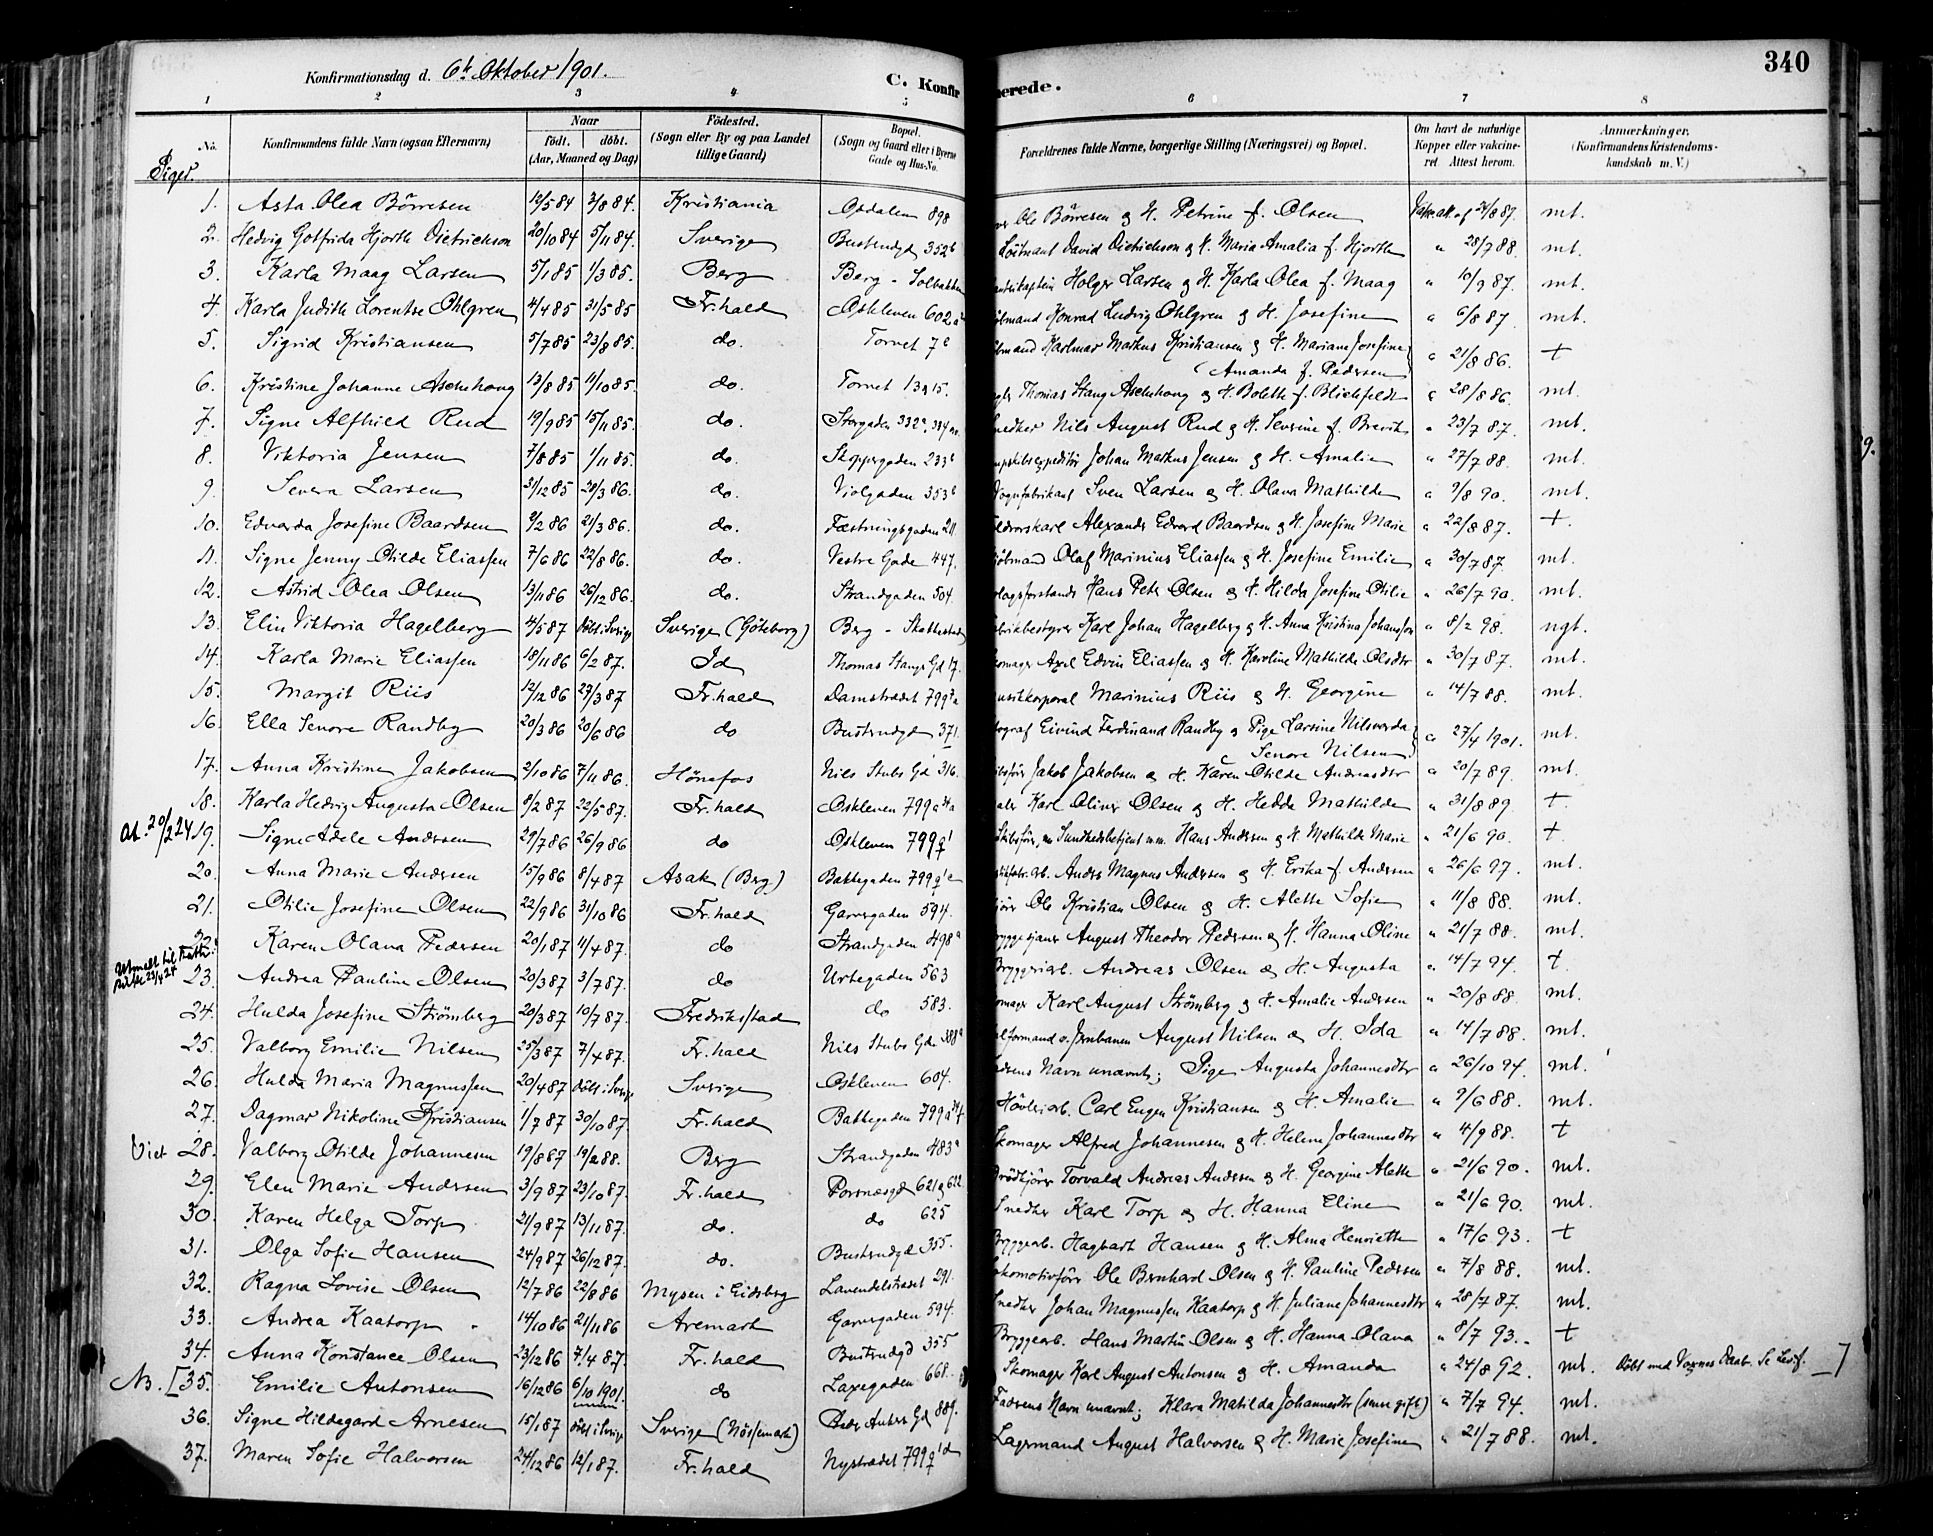 340
Konfirmationsdag d. 6te Oktober 1901.
C. Konfirmerede.
1 2 3 4 5 6 7 8
No. Konfirmandens fulde Navn (ogsaa Efternavn) Naar født. døbt. (Aar, Maaned og Dag) Fødested. (Sogn eller By og paa Landet tillige Gaard) Bopæl. (Sogn og Gaard eller i Byerne Gade og Hus-No. Forældrenes fulde Navne, borgerlige Stilling (Næringsvei) og Bopæl. Om havt de naturlige Kopper eller vakcineret. Attest herom. Anmærkninger. (Konfirmandens Kristendomskundskab m. V.)
Piger.
1. Asta Olea Börresen 12/5 84 3/8 84. Kristiania Osdalen 898 Ole Börresen & H. Petrine f. Olsen 24/8 87. mt.
2. Hedvig Gotfrida Hjorth Dietrichson 20/10 84 5/11 84. Sverige Busterudgd 352b Löitnant David Dietrichson & H. Maria Amalia f. Hjorth " 28/7 88. mt.
3. Karla Maag Larsen 5/1 85 1/3 85. Berg Berg - Solbakken Holger Larsen & H. Karla Olea f. Maag " 10/9 87. mt.
4. Karla Judith Lorentse Ohlgren 4/4 85 31/5 85 Fr.hald Oskleven 602 Konrad Ludvig Ohlgren & H. Josefine " 6/8 87. mt.
5. Sigrid Kristiansen 5/7 85 23/8 85. do. Torvet 7c Karlmar Markus Kristiansen & H. Mariane Josefine Amanda f. Pedersen " 21/8 86. +
6. Kristine Johanne Aschehoug 13/8 85 11/10 85. do. Torvet 13 & 15. Thomas Stang Aschehoug & H. Bolette f. Blichfeldt " 28/8 86. mt.
7. Signe Alfhild Rud 19/9 85 15/11 85. do. Storgaden 332a, 334 Snedker Nils August Rud & H. Severine f. Brevik " 23/7 87. mt.
8. Viktoria Jensen 7/8 85 1/11 85. do. Skippergaden 233b Johan Markus Jensen & H. Amalie " 27/7 88. mt.
9. Severa Larsen 31/12 85 28/3 86. do. Violgaden 353b Vognfabrikant Sven Larsen & H. Olava Mathilde " 9/8 90. mt.
10. Edvarda Josefine Baardsen 9/2 86 21/3 86. do. Fæstningsgaden 211 Alexander Edvard Baardsen & H. Josefine Marie " 22/8 87. +.
11. Signe Jenny Otilde Eliassen 7/6 86 22/8 86. do. Vestre Gade 447. Olaf Marinius Eliassen & H. Josefine Emilie " 30/7 87. mt.
12. Astrid Olea Olsen 13/11 86 26/12 86. do. Strandgaden 504. Hans Peter Olsen & H. Hilda Josefine Otilie " 26/7 90. mt.
13. Elin Viktoria Hagelberg 4/5 87 Döbt i Sverige Sverige (Göteborg) Berg - Karl Johan Hagelberg & H. Anna Kristina Johansson " 8/2 98. ngt.
14. Karla Marie Eliassen 18/11 86 6/2 87. Id Thomas Stangs Gd 17. Skomager Axel Edvin Eliassen & H. Karoline Mathilde Olsdtr " 30/7 87. mt.
15. Margit Riis 12/12 86 27/3 87 Fr.hald Damstrædet 799 Musikkorporal Marinius Riis & H. Georgine " 14/7 88. mt.
16. Ella Senore Randby 20/3 86 20/6 86 do Busterudgd 371. Eivind Ferdinand Randby & Pige Larsine Nilsverda Senore Nilsen " 27/4 1901. mt.
17. Anna Kristine Jakobsen 2/10 86 7/11 86. Hönefos Nils Stubs Gd 316. Jakob Jakobsen & H. Karen Otilde Andreasdtr " 20/7 89. mt.
18. Karla Hedvig Augusta Olsen 8/2 87 22/5 87. Fr.hald Oskleven 799 Karl Oliver Olsen & H. Hedda Mathilde " 31/8 89. +.
At. 20/2 24 19. Signe Adele Andersen 29/7 86 26/9 86 do Oskleven 799 Skibsförer, nu Sundhedsbetjent m.m. Hans Andersen & H. Mathilde Marie " 21/6 90. +
20. Anna Marie Andersen 15/9 86 8/4 87 Asak (Berg) Bakkegaden 799 Anders Magnus Andersen & H. Erika f. Andersen " 26/6 97. mt.
21. Otilie Josefine Olsen 22/9 86 31/10 86 Fr.hald Garvergaden 594. Ole Kristian Olsen & H. Alette Sofie " 11/8 88. mt.
22. Karen Olava Pedersen 20/1 87 11/4 87. do Strandgaden 498a August Theodor Pedersen & H. Hanna Oline " 21/7 88. mt.
Utmeldt til Kath: 23/4 24 23. Andrea Pauline Olsen 20/3 87 3/7 87. do Urtegaden 563 Bryggeriarb. Andreas Olsen & H. Augusta " 14/7 94. +
24. Hulda Josefine Strömberg 20/3 87 10/7 87. Fredriksstad do 583. Skomager Karl August Strömberg & H. Amalie Andersen " 20/8 88. mt.
25. Valborg Emilie Nilsen 25/3 87 7/4 87. Fr.hald Nils Stubs Gd. August Nilsen & H. Ida " 14/7 88. mt.
26. Hulda Maria Magnussen 20/4 87 Döbt i Sverige Sverige Oskleven 604. Faderens Navn unævnt; Pige Augusta Johannesdtr " 26/10 94. mt.
27. Dagmar Nikoline Kristiansen 1/7 87 30/10 87. Fr.hald Bakkegaden 799 Hövleriarb. Carl Eugen Kristiansen & H. Amalie " 9/6 88. mt.
Viet 28. Valborg Otilde Johannesen 19/8 87 19/2 88. Berg Strandgaden 483a Skomager Alfred Johannesen & H. Helene Johannesdtr " 4/9 88. +
29. Elen Marie Andersen 3/9 87 23/10 87. Fr.hald Porsnæsgd 621 & 622 Torvald Andreas Andersen & H. Georgine Alette " 21/6 90. mt.
30. Karen Helga Torp 21/9 87 13/11 87. do. do 625 Snedker Karl Torp & H. Hanna Eline " 21/6 90. mt.
31. Olga Sofie Hansen 24/9 87 26/12 87. do. Busterudgd 355. Bryggearb. Hagbart Hansen & H. Alma Henriette " 17/6 93. +
32. Ragna Lovise Olsen 12/7 86 22/8 86 Mysen i Eidsberg Lavendelstrædet 291. Lokomotivförer Ole Bernhard Olsen & H. Pauline Pedersen " 7/8 88. mt.
33. Andrea Kaatorp 14/10 86 21/11 86 Aremark Garvergaden 594. Snedker Johan Magnussen Kaatorp & H. Juliane Johannesdtr " 28/7 87. mt.
34. Anna Konstance Olsen 23/12 86 7/4 87. Fr.hald Busterudgd 355 Bryggearb. Hans Martin Olsen & H. Hanna Olava " 8/7 93. +
Nb. [35. Emilie Antonsen 16/12 86 6/10 1901. do Laxegaden 668. Skomager Karl August Antonsen & H. Amanda " 24/8 92. mt. Döbt med Voxnes Daab. Se ]
36. Signe Hildegard Arnesen 15/1 87 Döbt i Sverige Sverige (Nössemark) Peder Ankers Gd 889. Faderens Navn unævnt; Klara Matilda Johannesdtr (senere gift) " 7/7 94. mt.
37. Maren Sofie Halvorsen 24/12 86 12/1 87. Fr.hald Nystrædet 799 Lagermand August Halvorsen & H. Marie Josefine " 21/7 88. mt.